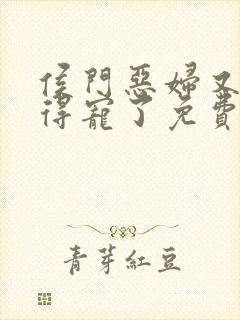 侯門惡婦又
得寵了免費
青芽紅豆